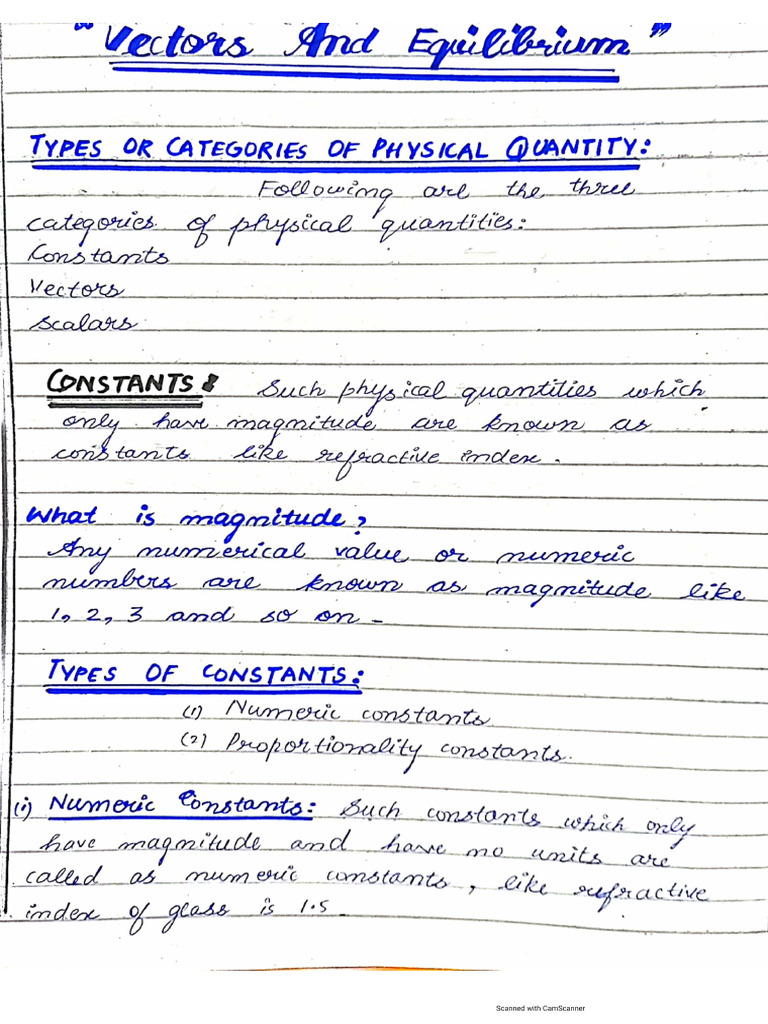 "Vectors And Equilibrium"
TYPES OR CATEGORIES OF PHYSICAL QUANTITY:
Following are the three
categories of physical quantities:
Constants
Vectors
Scalars
CONSTANTS: Such physical quantities which
only have magnitude are known as
constants like refractive index.
What is magnitude?
Any numerical value or numeric
numbers are known as magnitude like
1, 2, 3 and so on-
TYPES OF CONSTANTS:
(1) Numeric constants
(2) Proportionality constants.
(i) Numeric Constants: Such constants which only
have magnitude and have no units are
called as numeric constants, like refractive
index of glass is 1.5-
Scanned with CamScanner